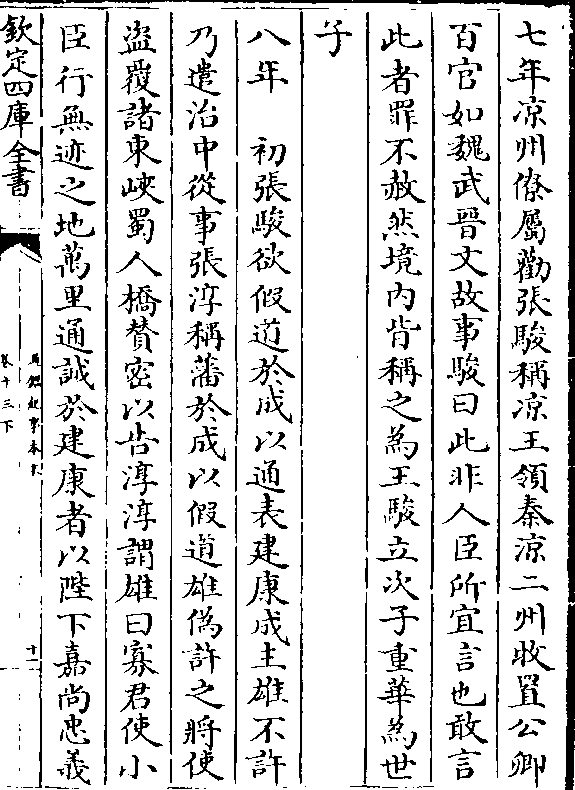 七年凉州僚屬勸張駿稱凉王領秦凉二州牧置公卿
百官如魏武晉文故事駿曰此非人臣所宜言也敢言
此者罪不赦然境内皆稱之為王駿立次子重華為世
子
八年 初張駿欲假道於成以通表建康成主雄不許
乃遣治中從事張淳稱藩於成以假道雄偽許之將使
盜覆諸東峽蜀人橋賛密以告淳淳謂雄曰寡君使小
臣行無迹之地萬里通誠於建康者以陛下嘉尚忠義
欽定四庫全書
通鑑紀事本末
卷十三下
十一